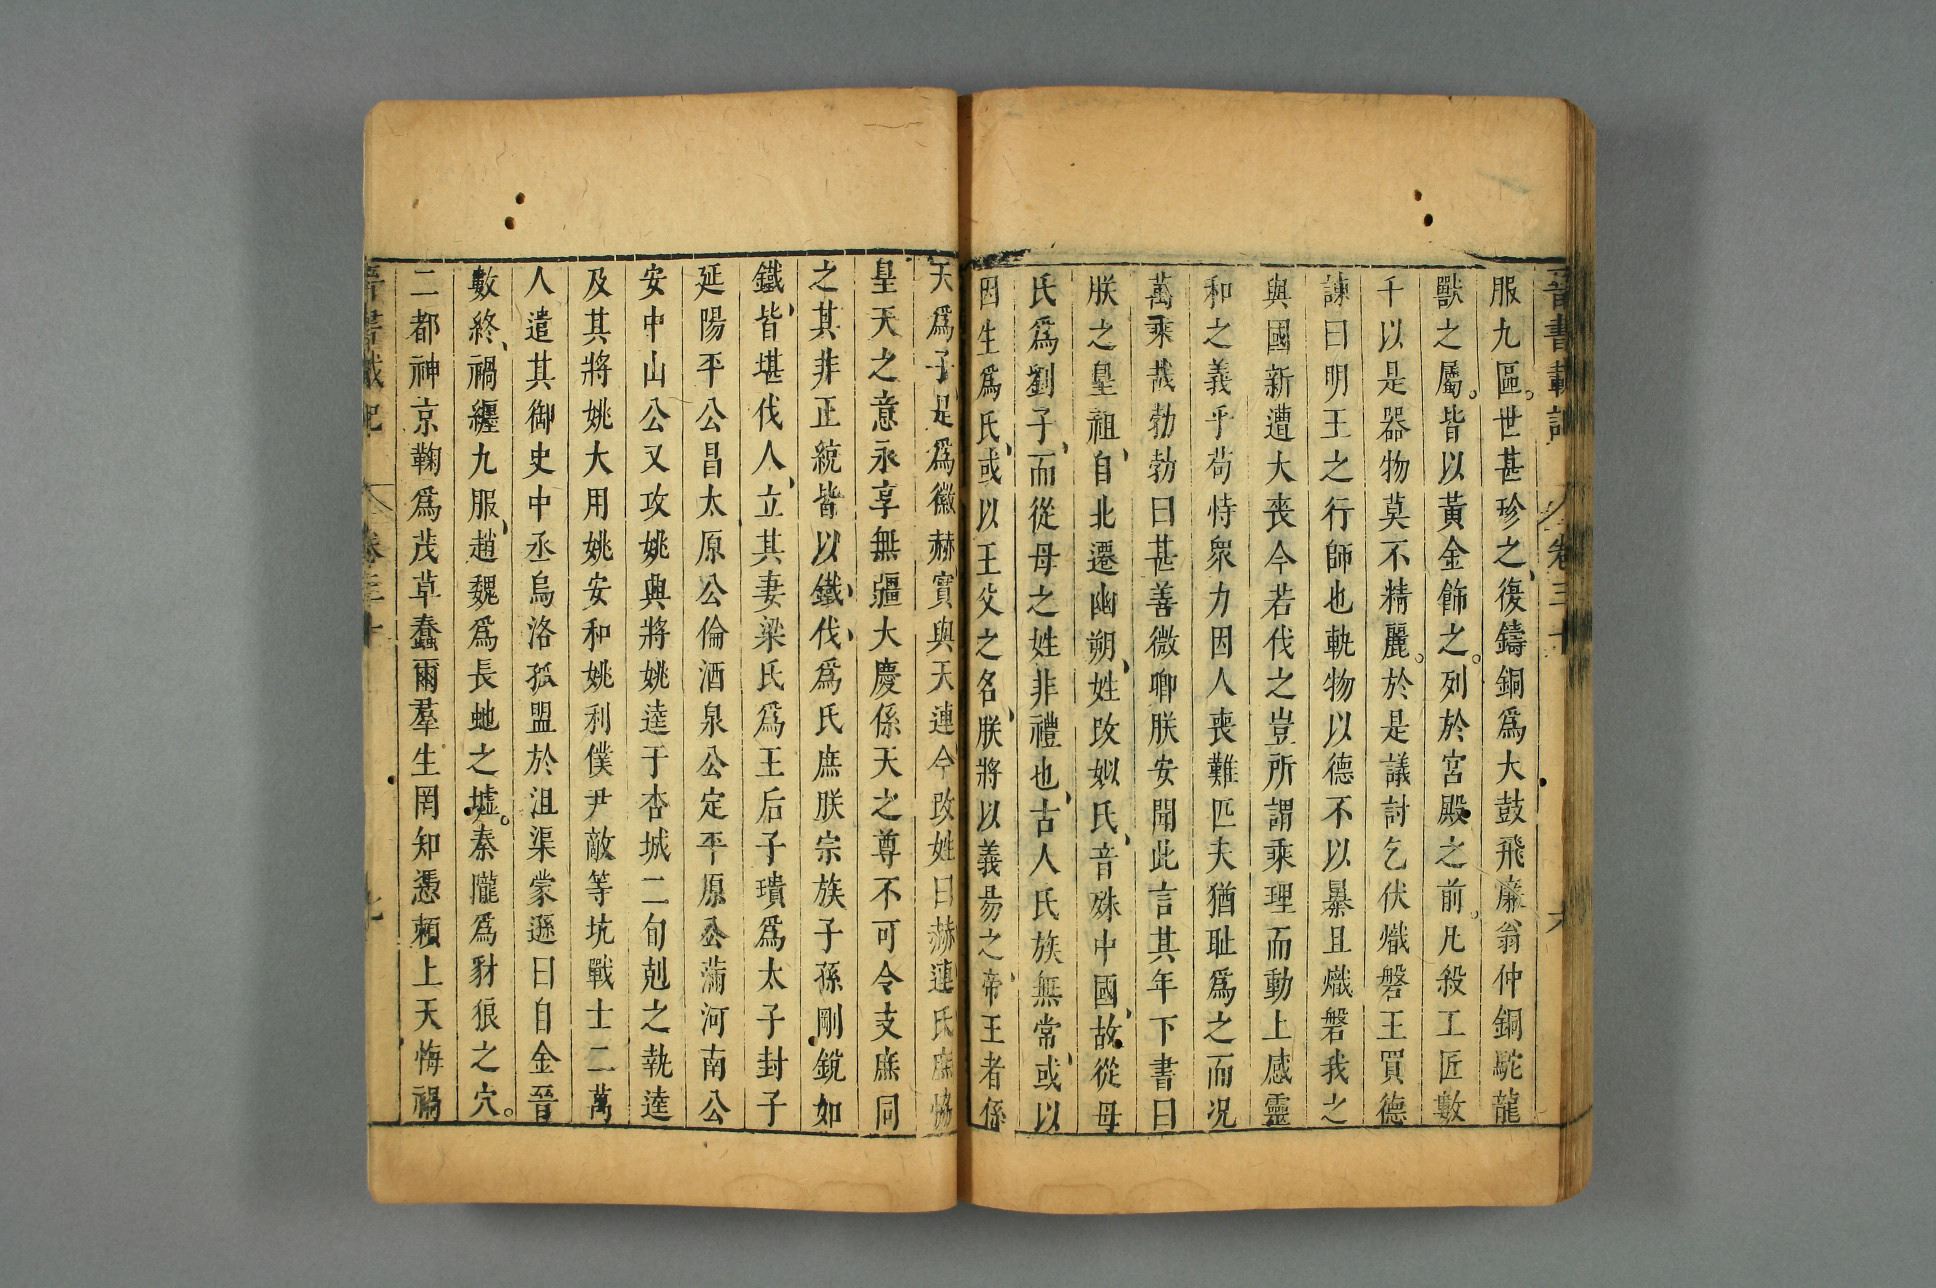 晉書載記 卷三十 六
服九區。世甚珍之、復鑄銅爲大鼓飛廉翁仲銅駝龍
獸之屬。皆以黃金飾之。列於宮殿之前。凡殺工匠數
千以是器物莫不精麗。於是議討乞伏熾磐王買德
諫曰明王之行師也軌物以德不以暴且熾磐我之
與國新遭大喪今若伐之豈所謂乘理而動上感靈
和之義乎苟恃眾力因人喪難匹夫猶耻爲之而况
萬乘哉勃勃曰甚善微卿朕安聞此言其年下書曰
朕之皇祖、自北遷幽朔、姓攺姒氏、音殊中國、故從母
氏爲劉子、而從母之姓非禮也、古人氏族無常、或以
因生爲氏、或以王父之名、朕將以義易之、帝王者係
天爲子、是爲徽赫實與天連今攺姓曰赫連氏庶恊
皇天之意永享無疆大慶係天之尊不可令支庶同
之其非正統皆以鐵、伐、爲氏庶朕宗族子孫剛銳如
鐵、皆堪伐人、立其妻梁氏爲王后子璝爲太子封子
延陽平公昌太原公倫酒泉公定平原公滿河南公
安中山公又攻姚興將姚逵于杏城二旬剋之執逵
及其將姚大用姚安和姚利僕尹敵等坑戰士二萬
人遣其御史中丞烏洛孤盟於沮渠蒙遜曰自金晉
數終、禍纏九服、趙魏爲長虵之墟。秦隴爲豺狼之穴。
二都神京鞠爲茂草蠢爾羣生罔知憑賴上天悔禍
晉書載記 卷三十 七